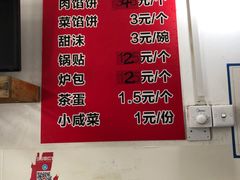 肉馅饼 元/个
菜馅饼 3元/个
甜沫 3元/碗
锅贴 2元/个
炉包 2元/个
茶蛋 1.5元/个
小咸菜 1元/份